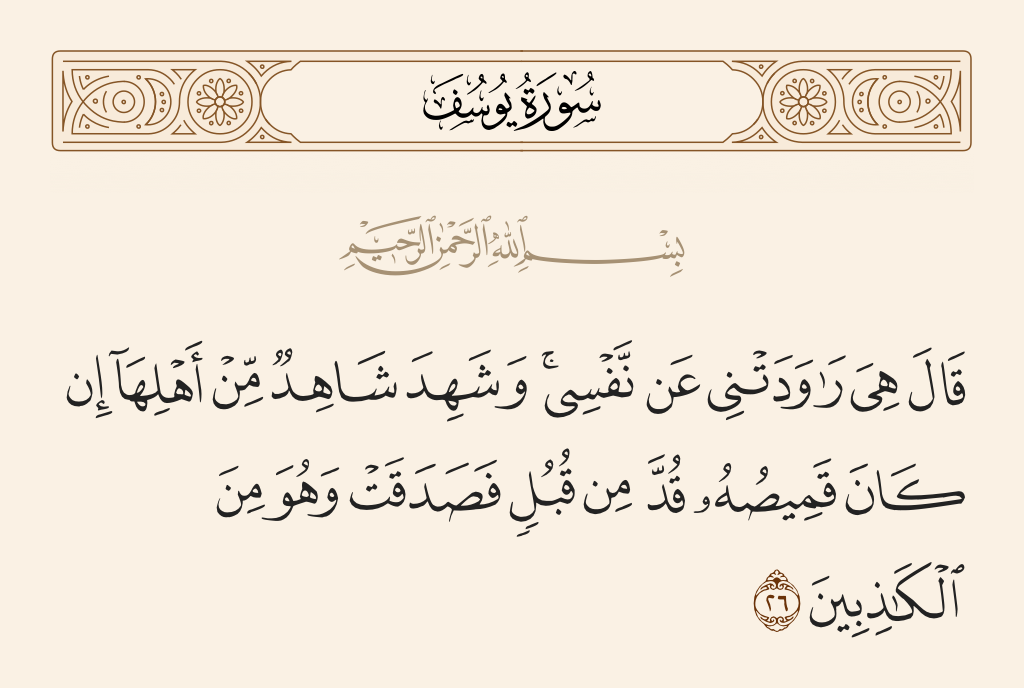 سُورَةُ يُوسُفَ
بِسْمِ ٱللَّهِ ٱلرَّحْمَٰنِ ٱلرَّحِيمِ
قَالَ هِىَ رَٰوَدَتْنِى عَن نَّفْسِى ۚ وَشَهِدَ شَاهِدٌ مِّنْ أَهْلِهَآ إِن
كَانَ قَمِيصُهُۥ قُدَّ مِن قُبُلٍ فَصَدَقَتْ وَهُوَ مِنَ
ٱلْكَٰذِبِينَ ٢٦